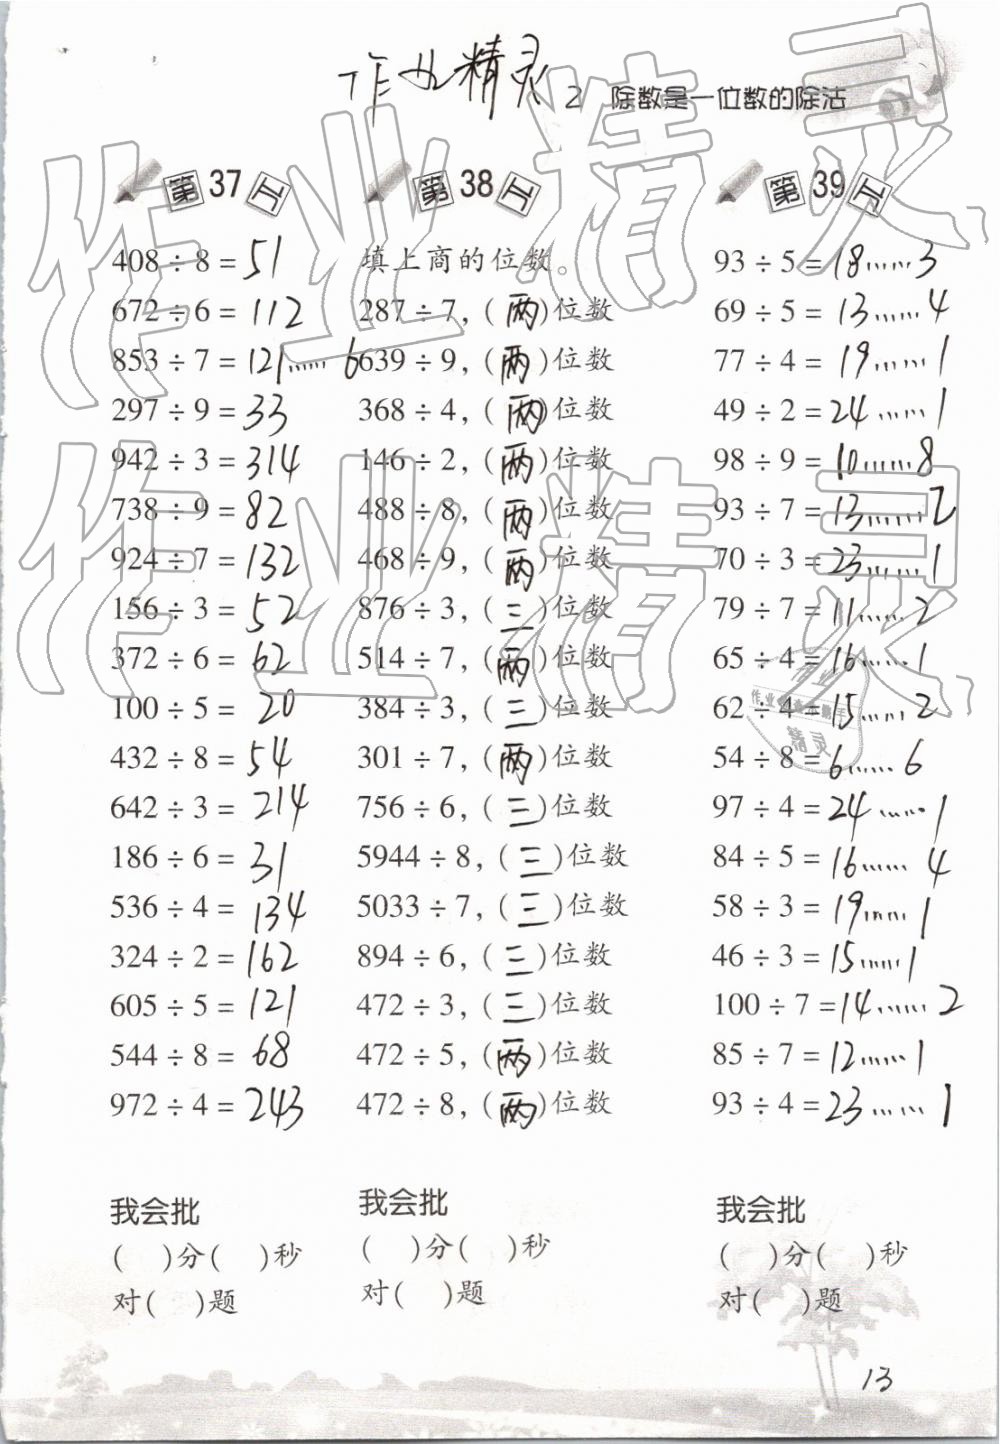 作业精灵
2 除数是一位数的除法
第37工
408÷8=51
672÷6=112
853÷7=121……6
297÷9=33
942÷3=314
738÷9=82
924÷7=132
156÷3=52
372÷6=62
100÷5=20
432÷8=54
642÷3=214
186÷6=31
536÷4=134
324÷2=162
605÷5=121
544÷8=68
972÷4=243
我会批
( )分( )秒
对( )题
第38工
填上商的位数。
287÷7,(两)位数
639÷9,(两)位数
368÷4,(两)位数
146÷2,(两)位数
488÷8,(两)位数
468÷9,(两)位数
876÷3,(三)位数
514÷7,(两)位数
384÷3,(三)位数
301÷7,(两)位数
756÷6,(三)位数
5944÷8,(三)位数
5033÷7,(三)位数
894÷6,(三)位数
472÷3,(三)位数
472÷5,(两)位数
472÷8,(两)位数
我会批
( )分( )秒
对( )题
第39工
93÷5=18……3
69÷5=13……4
77÷4=19……1
49÷2=24……1
98÷9=10……8
93÷7=13……2
70÷3=23……1
79÷7=11……2
65÷4=16……1
62÷4=15……2
54÷8=6……6
97÷4=24……1
84÷5=16……4
58÷3=19……1
46÷3=15……1
100÷7=14……2
85÷7=12……1
93÷4=23……1
我会批
( )分( )秒
对( )题
13
作业精灵
作业精灵
作业
精灵